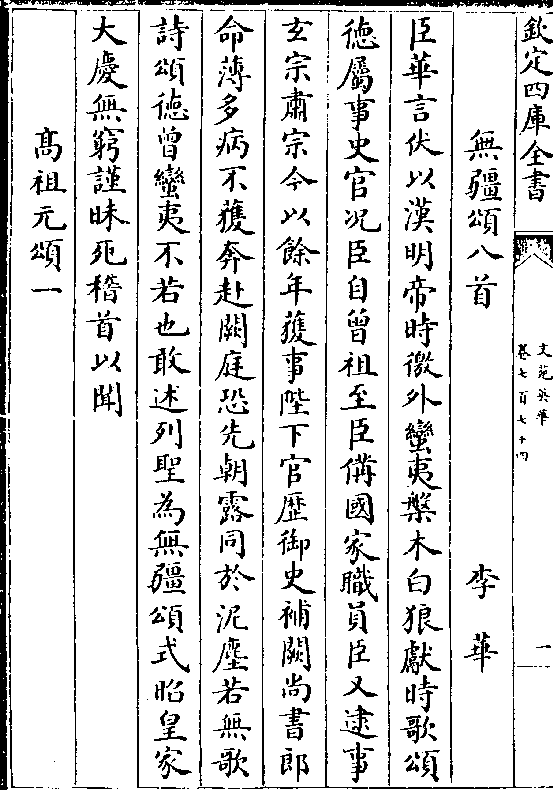 欽定四庫全書
文苑英華
卷七百七十四
一
無疆頌八首 李華
臣華言伏以漢明帝時徼外蠻夷槃木白狼獻時歌頌
徳屬事史官况臣自曾祖至臣備國家職員臣又逮事
玄宗肅宗今以餘年獲事陛下官歴御史補闕尚書郎
命薄多病不獲奔赴闕庭恐先朝露同於泥塵若無歌
詩頌徳曾蠻夷不若也敢述列聖為無疆頌式昭皇家
大慶無窮謹昧死稽首以聞
髙祖元頌一